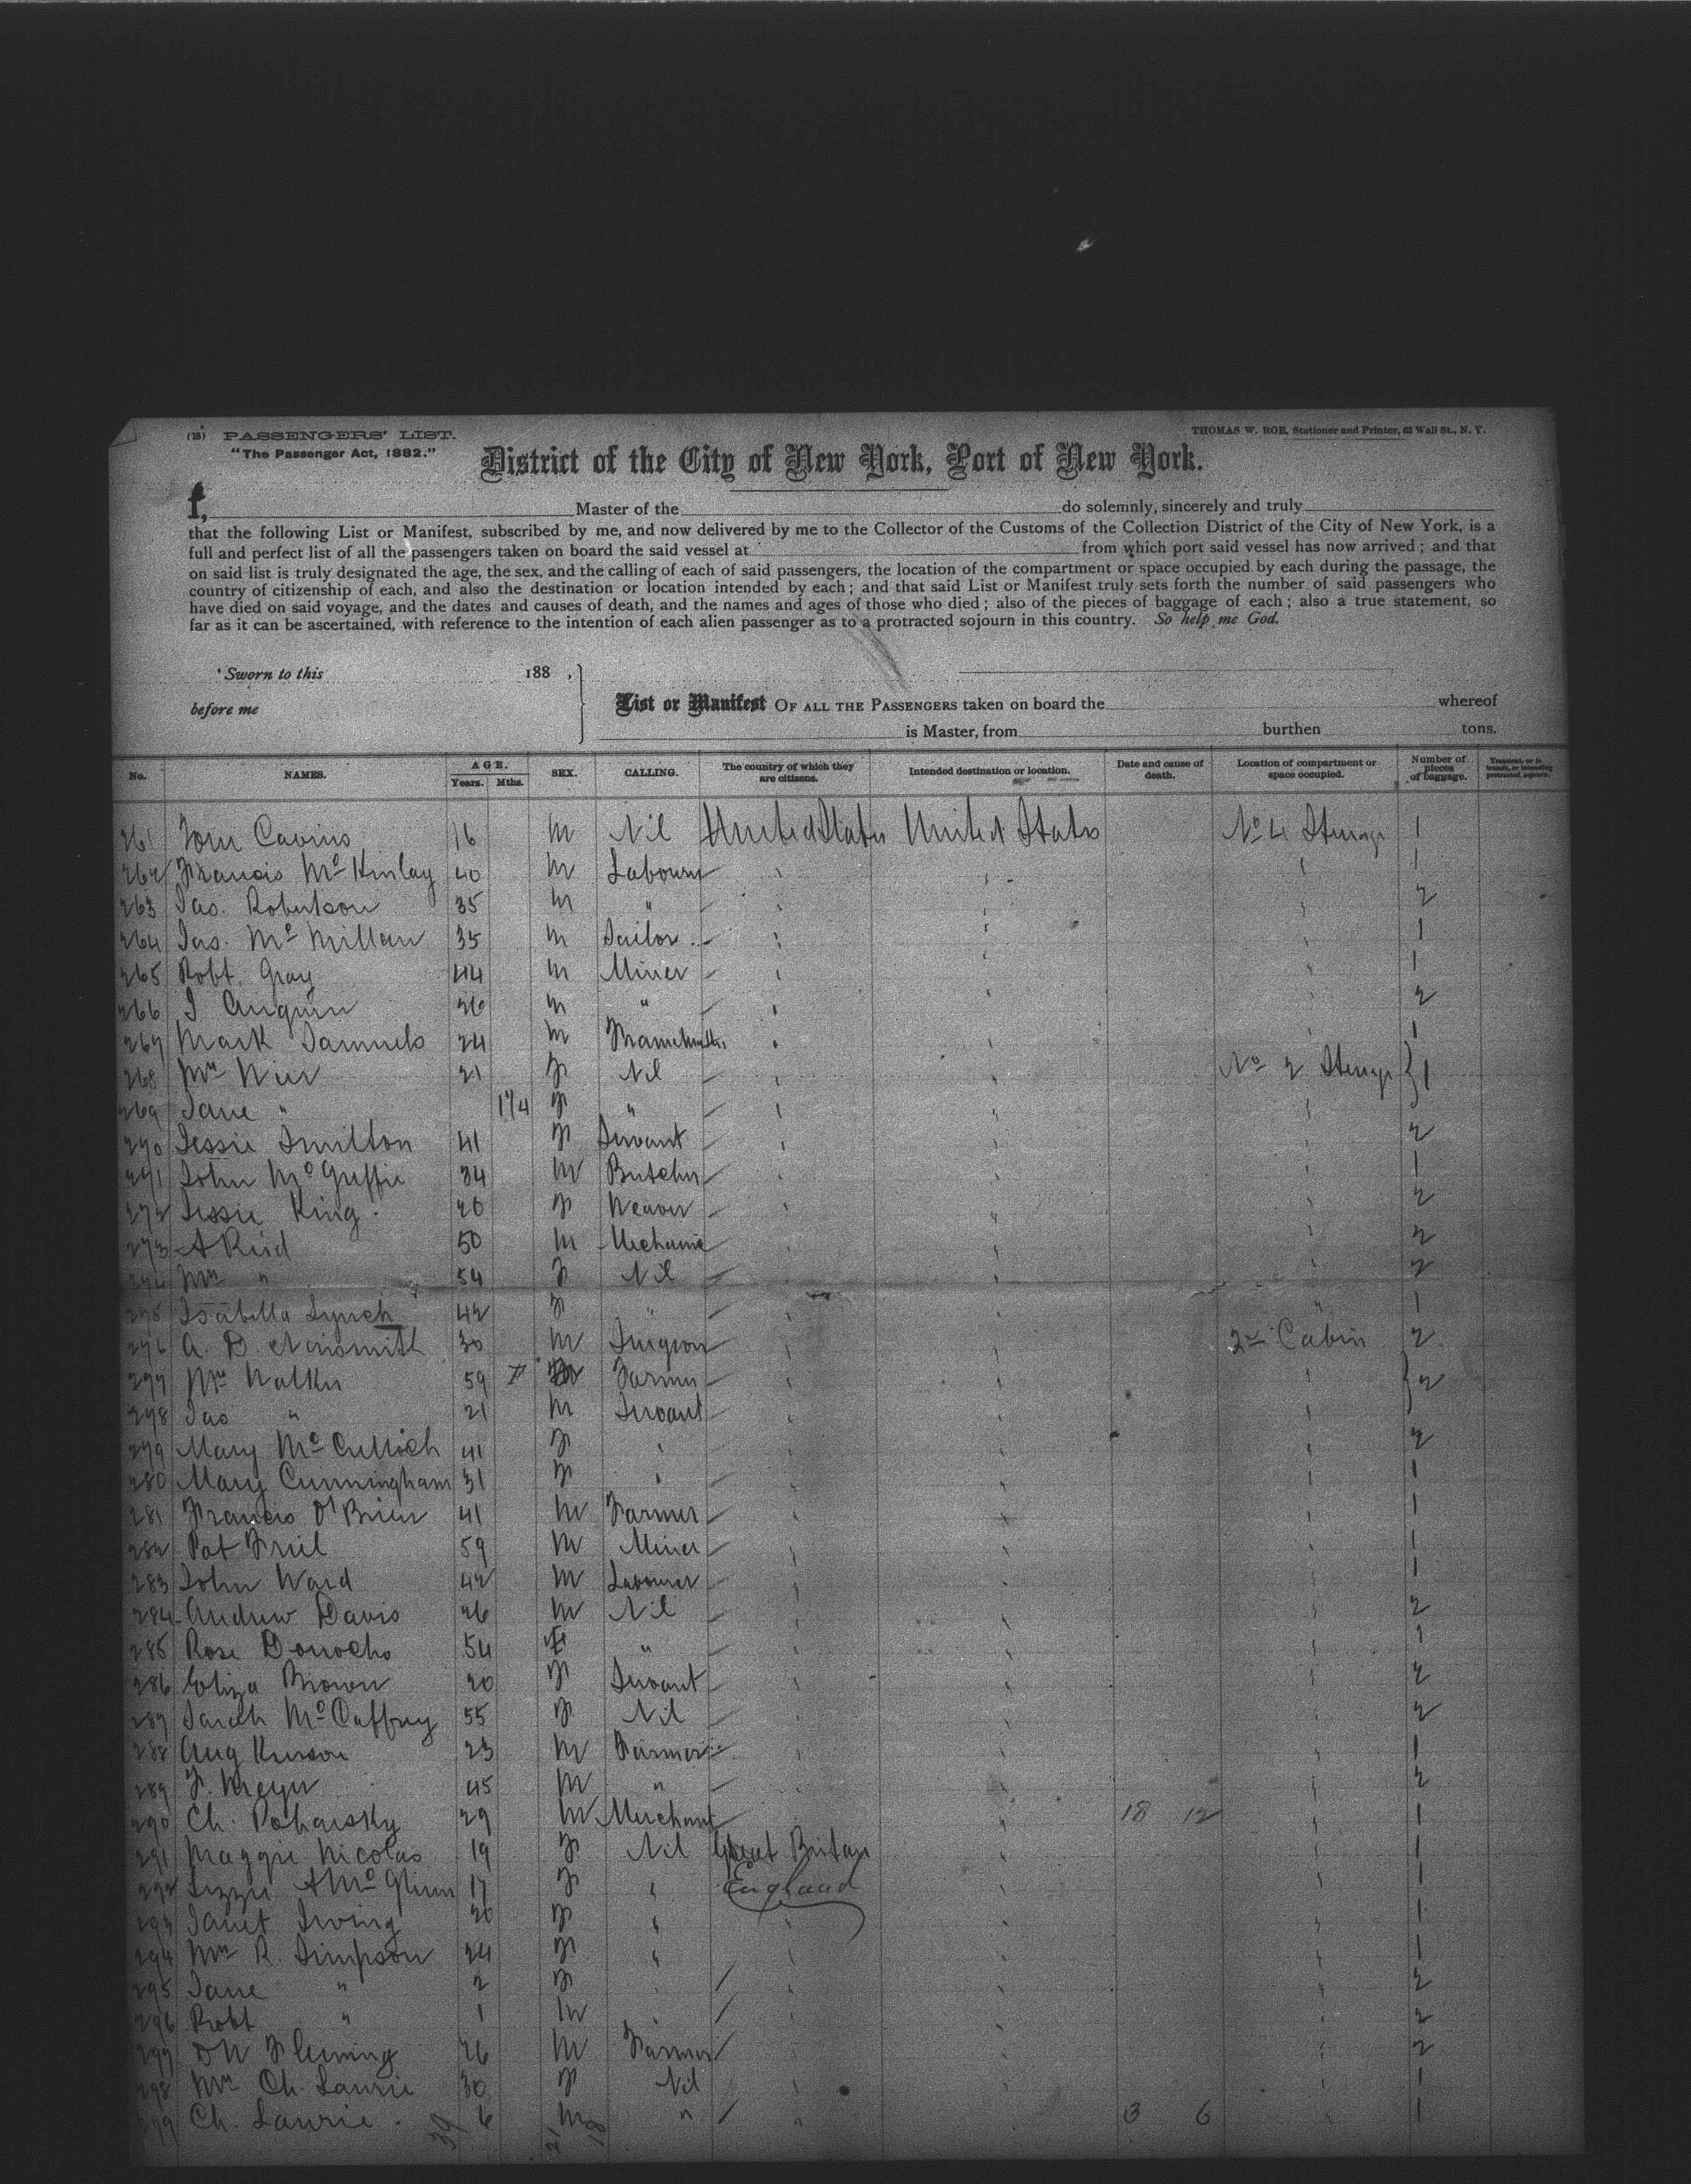 (18) PASSENGERS' LIST.
THOMAS W. ROE, Stationer and Printer, 63 Wall St., N. Y.
"The Passenger Act, 1882."
District of the City of New York, Port of New York.
I, Master of the do solemnly, sincerely and truly
that the following List or Manifest, subscribed by me, and now delivered by me to the Collector of the Customs of the Collection District of the City of New York, is a
full and perfect list of all the passengers taken on board the said vessel at from which port said vessel has now arrived; and that
on said list is truly designated the age, the sex, and the calling of each of said passengers, the location of the compartment or space occupied by each during the passage, the
country of citizenship of each, and also the destination or location intended by each; and that said List or Manifest truly sets forth the number of said passengers who
have died on said voyage, and the dates and causes of death, and the names and ages of those who died; also of the pieces of baggage of each; also a true statement, so
far as it can be ascertained, with reference to the intention of each alien passenger as to a protracted sojourn in this country. So help me God.
Sworn to this 188 .
before me
List or Manifest OF ALL THE PASSENGERS taken on board the whereof
is Master, from burthen tons.
No. NAMES. AGE. Years. Mths. SEX. CALLING. The country of which they are citizens. Intended destination or location. Date and cause of death. Location of compartment or space occupied. Number of pieces of baggage. Transient, or in transit, or intending protracted sojourn.
261 Tom Cavins 16 M Nil United States United States No 4 Steerage 1
262 Francis McKinlay 40 M Labourer " " " 1
263 Jas. Robertson 35 M " " " " 2
264 Jas. McMillan 35 M Sailor " " " 1
265 Robt. Gray 44 M Miner " " " 1
266 J 26 M " " " 2
267 Mark Samuels 24 M " " " 1
268 Mrs Weir 21 F Nil " " No 2 Steerage 1
269 Jane " 1 1/4 F " " " "
270 Jessie Smilton 41 F Servant " " " 2
271 John McGuffie 34 M Butcher " " " 1
272 Jessie King 20 F Weaver " " " 2
273 A Reid 50 M Mechanic " " " 2
274 Mrs " 54 F Nil " " " 2
275 Isabella Lynch 42 F " " " " 1
276 A. D. Naismith 30 M Surgeon " " 2nd Cabin 2
277 Mrs Walker 59 F Farmer " " " 2
278 Jas " 21 M Servant " " "
279 Mary McCulloch 41 F " " " " 2
280 Mary Cunningham 31 F " " " " 1
281 Francis O'Brien 41 M Farmer " " " 1
282 Pat Friil 59 M Miner " " " 1
283 John Ward 42 M Labourer " " " 1
284 Andrew Davis 26 M Nil " " " 2
285 Rose Donocho 54 F " " " " 1
286 Eliza Brown 20 F Servant " " " 2
287 Sarah McCaffray 55 F Nil " " " 2
288 Aug 23 M Farmer " " " 1
289 F. Meyer 45 M " " " " 2
290 Ch. Poharsky 29 M Merchant " " 18 12 " 1
291 Maggie Nicolas 19 F Nil Great Britain " " 1
292 Lizzie A McGlinn 17 F " England " " 1
293 Janet Irving 20 F " " " " 1
294 Mrs R. Simpson 24 F " " " " 1
295 Jane " 2 F " " " " 2
296 Robt " 1 M " " " " 2
297 Fleming 26 M Farmer " " " 2
298 Mrs Ch. Laurie 30 F Nil " " " 1
299 Ch. Laurie 6 M " " 3 6 " 1
39 21 18